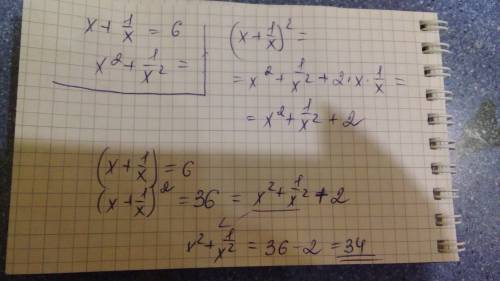 x + 1/x = 6
x² + 1/x² =
(x + 1/x)² =
= x² + 1/x² + 2·x·1/x =
= x² + 1/x² + 2
(x + 1/x) = 6
(x + 1/x)² = 36 = x² + 1/x² + 2
x² + 1/x² = 36 - 2 = 34